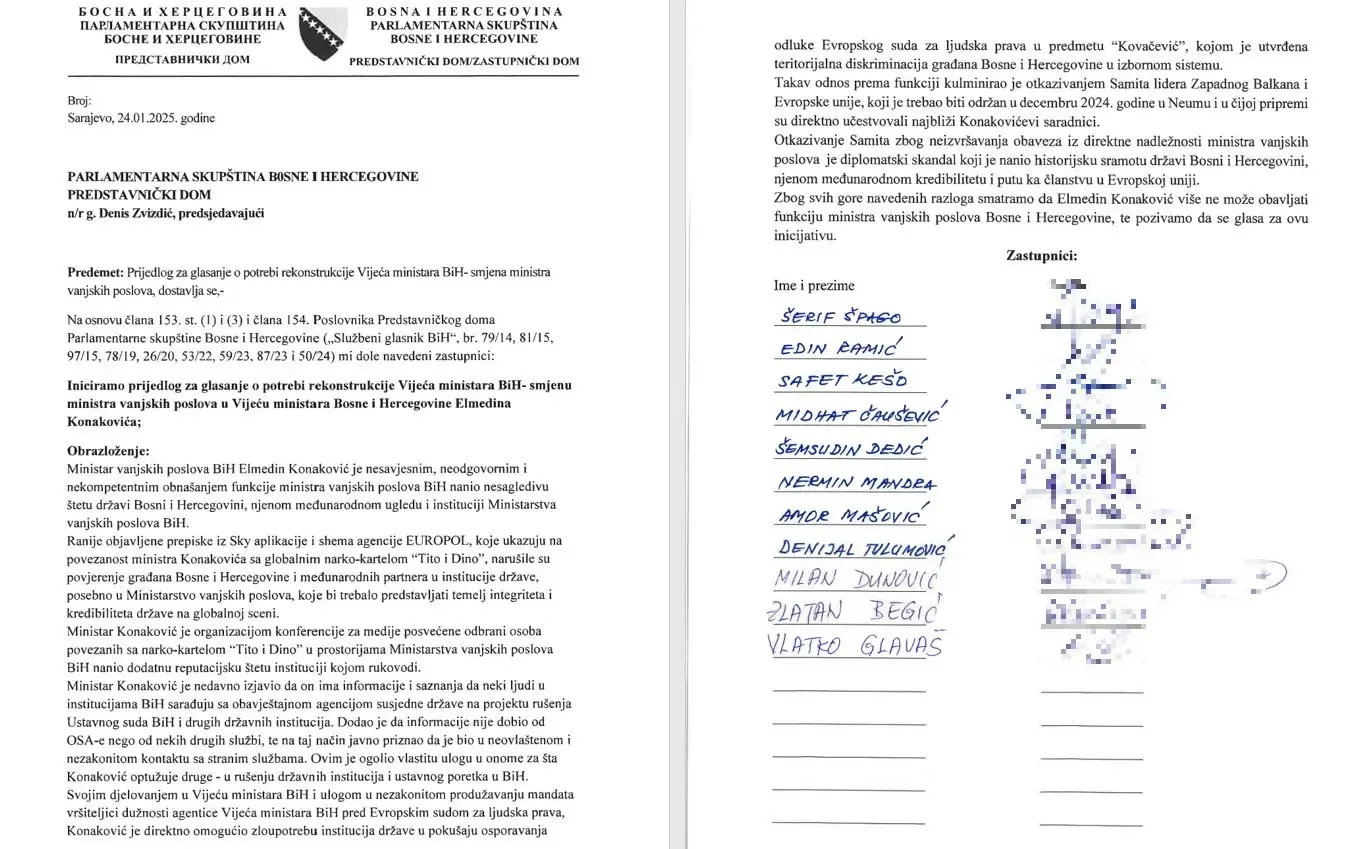 БОСНА И ХЕРЦЕГОВИНА
ПАРЛАМЕНТАРНА СКУПШТИНА
БОСНЕ И ХЕРЦЕГОВИНЕ
ПРЕДСТАВНИЧКИ ДОМ
BOSNA I HERCEGOVINA
PARLAMENTARNA SKUPŠTINA
BOSNE I HERCEGOVINE
PREDSTAVNIČKI DOM/ZASTUPNIČKI DOM
Broj:
Sarajevo, 24.01.2025. godine
PARLAMENTARNA SKUPŠTINA B0SNE I HERCEGOVINE
PREDSTAVNIČKI DOM
n/r g. Denis Zvizdić, predsjedavajući
Predemet: Prijedlog za glasanje o potrebi rekonstrukcije Vijeća ministara BiH- smjena ministra
vanjskih poslova, dostavlja se,-
Na osnovu člana 153. st. (1) i (3) i člana 154. Poslovnika Predstavničkog doma
Parlamentarne skupštine Bosne i Hercegovine („Službeni glasnik BiH“, br. 79/14, 81/15,
97/15, 78/19, 26/20, 53/22, 59/23, 87/23 i 50/24) mi dole navedeni zastupnici:
Iniciramo prijedlog za glasanje o potrebi rekonstrukcije Vijeća ministara BiH- smjenu
ministra vanjskih poslova u Vijeću ministara Bosne i Hercegovine Elmedina
Konakovića;
Obrazloženje:
Ministar vanjskih poslova BiH Elmedin Konaković je nesavjesnim, neodgovornim i
nekompetentnim obnašanjem funkcije ministra vanjskih poslova BiH nanio nesagledivu
štetu državi Bosni i Hercegovini, njenom međunarodnom ugledu i instituciji Ministarstva
vanjskih poslova BiH.
Ranije objavljene prepiske iz Sky aplikacije i shema agencije EUROPOL, koje ukazuju na
povezanost ministra Konakovića sa globalnim narko-kartelom “Tito i Dino”, narušile su
povjerenje građana Bosne i Hercegovine i međunarodnih partnera u institucije države,
posebno u Ministarstvo vanjskih poslova, koje bi trebalo predstavljati temelj integriteta i
kredibiliteta države na globalnoj sceni.
Ministar Konaković je organizacijom konferencije za medije posvećene odbrani osoba
povezanih sa narko-kartelom “Tito i Dino” u prostorijama Ministarstva vanjskih poslova
BiH nanio dodatnu reputacijsku štetu instituciji kojom rukovodi.
Ministar Konaković je nedavno izjavio da on ima informacije i saznanja da neki ljudi u
institucijama BiH sarađuju sa obavještajnom agencijom susjedne države na projektu rušenja
Ustavnog suda BiH i drugih državnih institucija. Dodao je da informacije nije dobio od
OSA-e nego od nekih drugih službi, te na taj način javno priznao da je bio u neovlaštenom i
nezakonitom kontaktu sa stranim službama. Ovim je ogolio vlastitu ulogu u onome za šta
Konaković optužuje druge - u rušenju državnih institucija i ustavnog poretka u BiH.
Svojim djelovanjem u Vijeću ministara BiH i ulogom u nezakonitom produžavanju mandata
vršiteljici dužnosti agentice Vijeća ministara BiH pred Evropskim sudom za ljudska prava,
Konaković je direktno omogućio zloupotrebu institucija države u pokušaju osporavanja
odluke Evropskog suda za ljudska prava u predmetu “Kovačević”, kojom je utvrđena
teritorijalna diskriminacija građana Bosne i Hercegovine u izbornom sistemu.
Takav odnos prema funkciji kulminirao je otkazivanjem Samita lidera Zapadnog Balkana i
Evropske unije, koji je trebao biti održan u decembru 2024. godine u Neumu i u čijoj pripremi
su direktno učestvovali najbliži Konakovićevi saradnici.
Otkazivanje Samita zbog neizvršavanja obaveza iz direktne nadležnosti ministra vanjskih
poslova je diplomatski skandal koji je nanio historijsku sramotu državi Bosni i Hercegovini,
njenom međunarodnom kredibilitetu i putu ka članstvu u Evropskoj uniji.
Zbog svih gore navedenih razloga smatramo da Elmedin Konaković više ne može obavljati
funkciju ministra vanjskih poslova Bosne i Hercegovine, te pozivamo da se glasa za ovu
inicijativu.
Zastupnici:
Ime i prezime
ŠERIF ŠPAGO
EDIN RAMIĆ
SAFET KEŠO
MIDHAT ČAUŠEVIĆ
ŠEMSUDIN DEDIĆ
NERMIN MANDRA
AMOR MAŠOVIĆ
DENIJAL TULUMOVIĆ
MILAN DUNOVIĆ
ZLATAN BEGIĆ
VLATKO GLAVAŠ